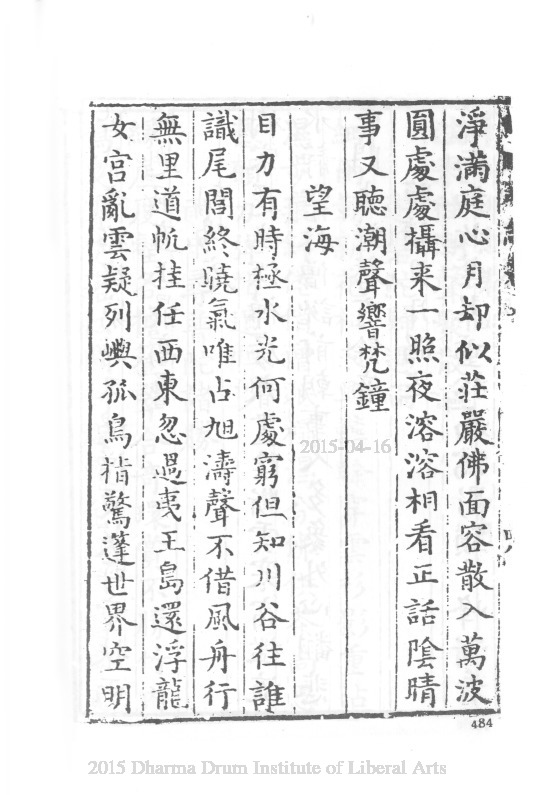 淨滿庭心月却似莊嚴佛面容散入萬波
圓處處攝来一照夜溶溶相看正話陰晴
事又聽潮聲響梵鐘
望海
目力有時極水光何處窮但知川谷往誰
識尾閭終曉氣唯占旭濤聲不借風舟行
無里道帆挂任西東忽過夷王島還浮龍
女宮亂雲疑列嶼孤鳥指驚蓬世界空明
484
2015-04-16
2015 Dharma Drum Institute of Liberal Arts